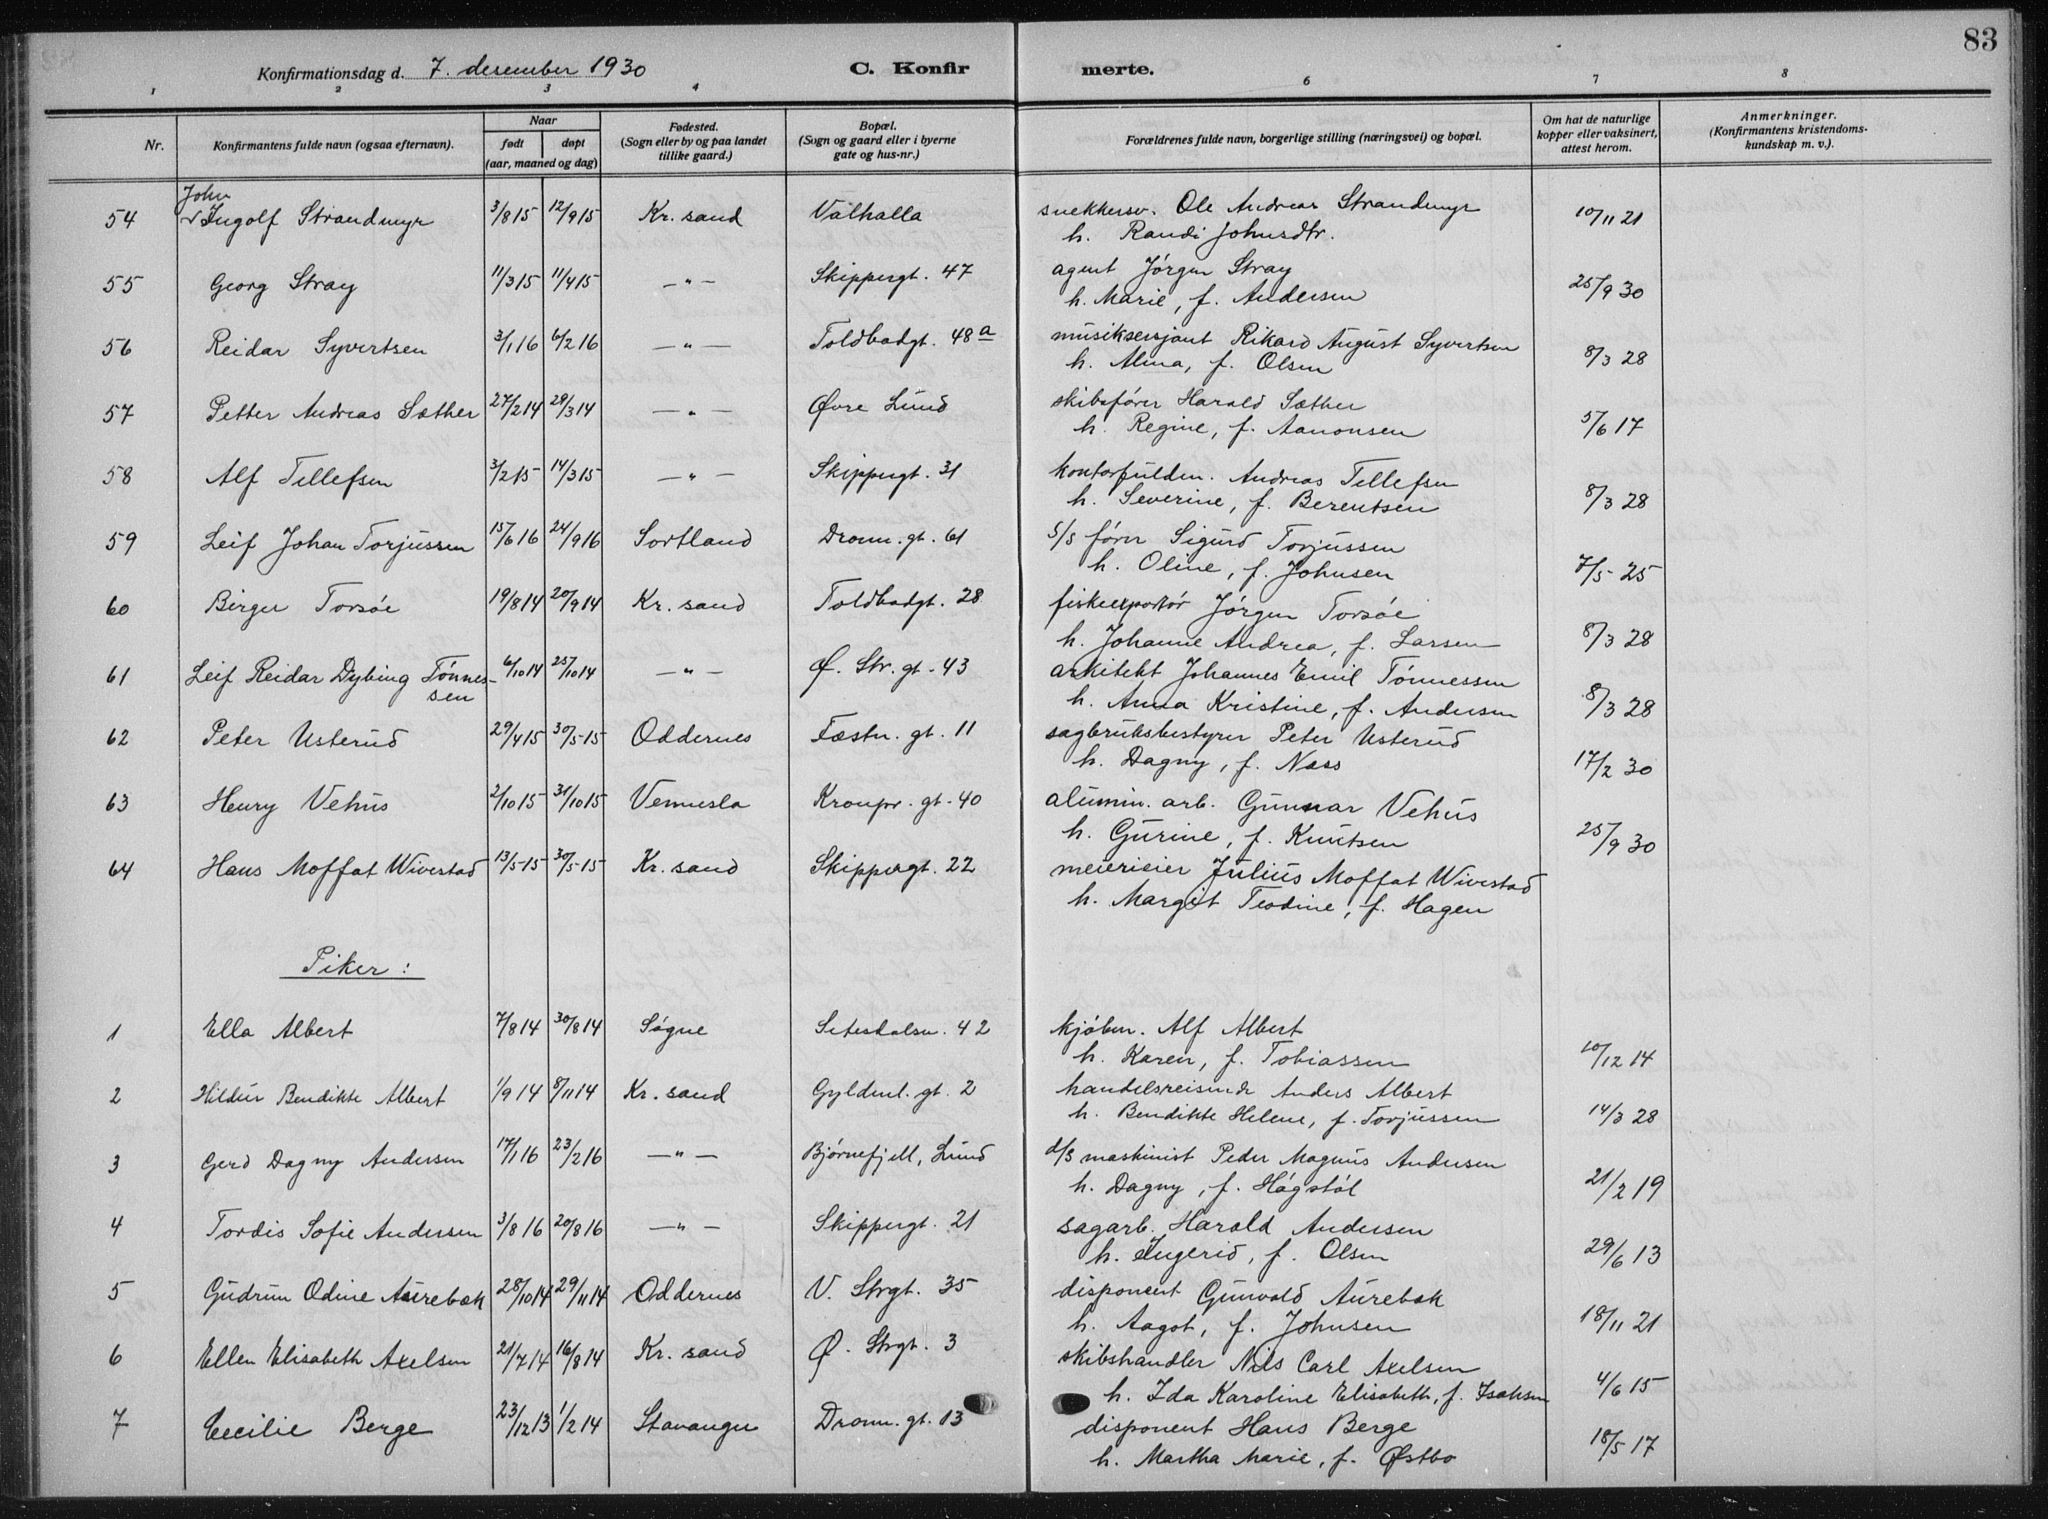 83
Konfirmationsdag d. 7. desember 1930 C. Konfirmerte.
1 2 3 4 6 7 8
Nr. Konfirmantens fulde navn (ogsaa efternavn). Naar født døpt (aar, maaned og dag) Fødested. (Sogn eller by og paa landet tillike gaard.) Bopæl. (Sogn og gaard eller i byerne gate og hus-nr.) Forældrenes fulde navn, borgerlige stilling (næringsvei) og bopæl. Om hat de naturlige kopper eller vaksinert, attest herom. Anmerkninger. (Konfirmantens kristendoms-kundskap m. v.).
54 John Ingolf Strandmyr 3/8 15 12/9 15 Kr. sand Valhalla snekkersv. Ole Andreas Strandmyr 10/11 21
h. Randi Johnsdtr.
55 Georg Stray 11/3 15 11/4 15 —"— Skippergt. 47 agent Jørgen Stray 25/9 30
h. Marie, f. Andersen
56 Reidar Syvertsen 3/1 16 6/2 16 —"— Toldbodgt. 48a musiksersjant Rikard August Syvertsen 8/3 28
h. Alma, f. Olsen
57 Petter Andreas Sæther 27/2 14 29/3 14 —"— Øvre Lund skibsfører Harald Sæther 5/6 17
h. Regine, f. Aanonsen
58 Alf Tellefsen 3/2 15 14/3 15 —"— Skippergt. 31 kontorfuldm. Andreas Tellefsen 8/3 28
h. Severine, f. Berentsen
59 Leif Johan Torjussen 15/6 16 24/9 16 Sortland Dronn. gt. 61 s/s fører Sigurd Torjussen 7/5 25
h. Oline, f. Johnsen
60 Birger Torsøe 19/8 14 20/9 14 Kr. sand Toldbodgt. 28 fiskeexportør Jørgen Torsøe 8/3 28
h. Johanne Andrea, f. Larsen
61 Leif Reidar Dybing Tønnes- 6/10 14 25/10 14 —"— Ø. Str. gt. 43 arkitekt Johannes Emil Tønnessen 8/3 28
sen h. Anna Kristine, f. Andersen
62 Peter Usterud 29/4 15 30/5 15 Oddernes Fæstn. gt. 11 sagbruksbestyrer Peter Usterud 17/2 30
h. Dagny, f. Næss
63 Henry Vehus 2/10 15 31/10 15 Vennesla Kronpr. gt. 40 alumin. arb. Gunnar Vehus 25/9 30
h. Gurine, f. Knutsen
64 Hans Moffat Wivestad 13/5 15 30/5 15 Kr. sand Skippergt. 22 meierieier Julius Moffat Wivestad
h. Margit Teodine, f. Hagen
Piker:
1 Ella Albert 7/8 14 30/8 14 Søgne Setesdalsv. 42 kjøbm. Alf Albert 10/12 14
h. Karen, f. Tobiassen
2 Hildur Bendikte Albert 1/9 14 8/11 14 Kr. sand Gyldenl. gt. 2 handelsreisende Anders Albert 14/3 28
h. Bendikte Helene, f. Torjussen
3 Gerd Dagny Andersen 17/1 16 23/2 16 —"— Bjørnefjell, Lund d/s maskinist Peder Magnus Andersen 21/2 19
h. Dagny, f. Høgstøl
4 Tordis Sofie Andersen 3/8 16 20/8 16 —"— Skippergt. 21 sagarb. Harald Andersen 29/6 13
h. Ingerid, f. Olsen
5 Gudrun Odine Aurebæk 28/10 14 29/11 14 Oddernes V. Strgt. 35 disponent Gunvald Aurebæk 18/11 21
h. Aagot, f. Johnsen
6 Ellen Elisabeth Axelsen 21/7 14 16/8 14 Kr. sand Ø. Strgt. 3 skibshandler Nils Carl Axelsen 4/6 15
h. Ida Karoline Elisabeth, f. Isaksen
7 Cecilie Berge 23/12 13 1/2 14 Stavanger Dronn. gt. 13 disponent Hans Berge 18/5 17
h. Martha Marie, f. Østbø